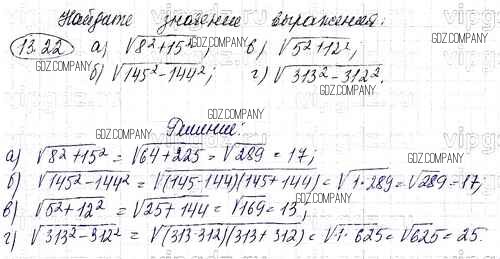 Найдите значение выражения:
13.22 а) √8²+15²; в) √5²+12²;
GDZ.COMPANY GDZ.COMPANY GDZ.COMPANY
б) √145²-144²; г) √313²-312².
GDZ.COMPANY
GDZ.COMPANY
Решение:
а) √8²+15² = √64+225 = √289 = 17;
б) √145²-144² = √(145-144)(145+144) = √1·289 = √289 = 17;
в) √5²+12² = √25+144 = √169 = 13;
г) √313²-312² = √(313-312)(313+312) = √1·625 = √625 = 25.